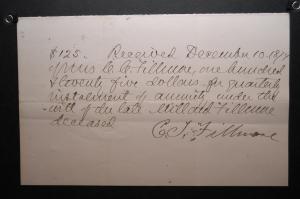 $125. Received December 10. 187
of Mrs C. C. Fillmore, one hundred
& twenty five dollars, for quarterly
instalment of annuity under the
will of the late Millard Fillmore
deceased
Fillmore